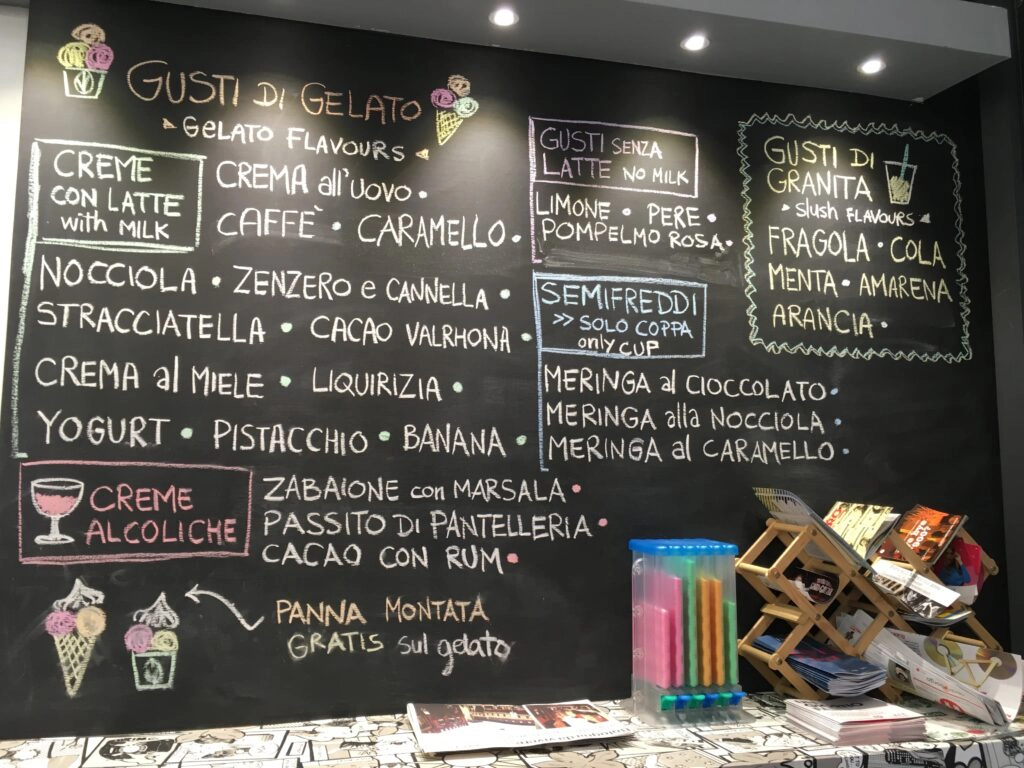 GUSTI DI GELATO
GELATO FLAVOURS
CREME
CON LATTE
with MILK
CREMA all'UOVO •
CAFFÈ • CARAMELLO •
NOCCIOLA • ZENZERO e CANNELLA •
STRACCIATELLA • CACAO VALRHONA •
CREMA al MIELE • LIQUIRIZIA •
YOGURT • PISTACCHIO • BANANA •
CREME
ALCOLICHE
ZABAIONE con MARSALA •
PASSITO DI PANTELLERIA •
CACAO CON RUM •
PANNA MONTATA
GRATIS sul gelato
GUSTI SENZA
LATTE NO MILK
LIMONE • PERE •
POMPELMO ROSA •
SEMIFREDDI
>> SOLO COPPA
only CUP
MERINGA al CIOCCOLATO •
MERINGA alla NOCCIOLA •
MERINGA al CARAMELLO •
GUSTI DI
GRANITA
SLUSH FLAVOURS
FRAGOLA • COLA
MENTA • AMARENA
ARANCIA •